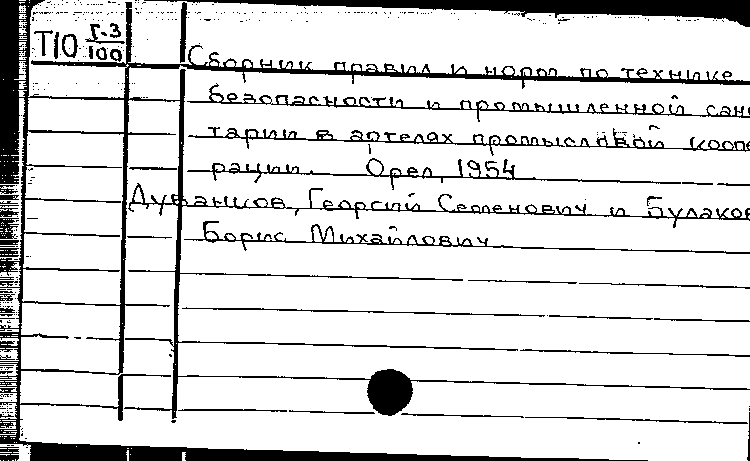 Т10 Г-3/100
Сборник правил и норм по технике
безопасности и промышленной сани
тарии в артелях промысловой коопе
рации. Орел, 1954
Георгий Семенович и Булаков
Борис Михайлович